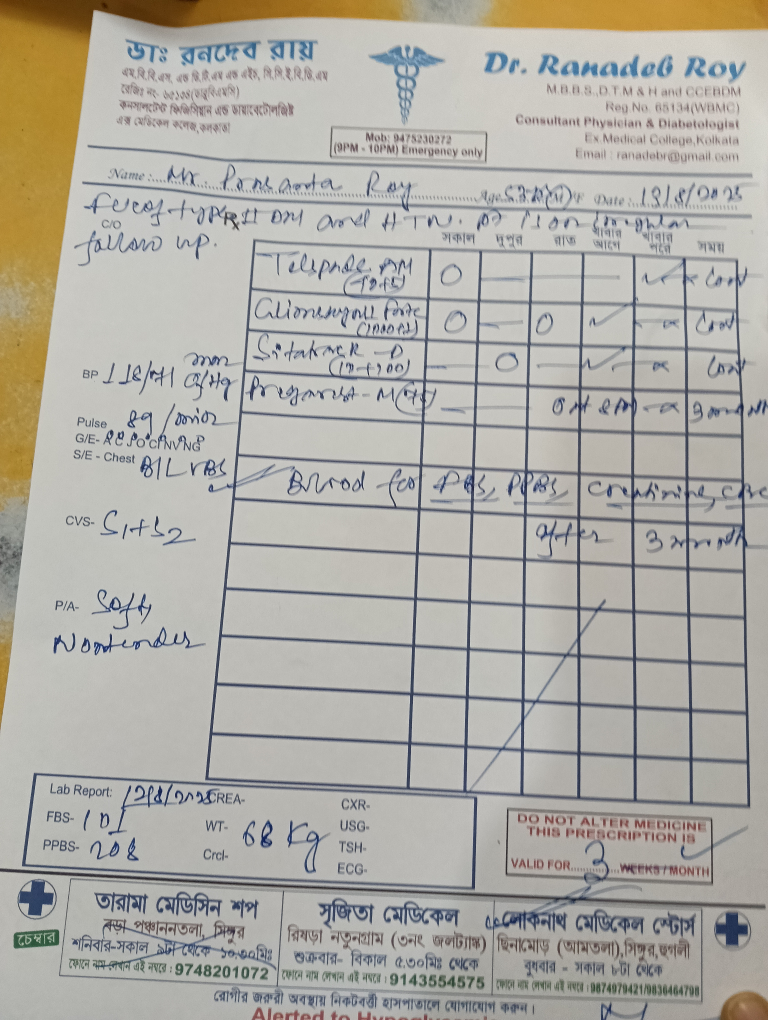 ডাঃ রনদেব রায়
এম.বি.বি.এস, এন্ড ডি.টি.এম এন্ড এইচ, সি.সি.ই.বি.ডি.এম
রেজিঃ নং- ৬৫১৩৪(ডব্লুবিএমসি)
কনসালটেন্ট ফিজিসিয়ান এন্ড ডায়াবেটোলজিষ্ট
এক্স মেডিকেল কলেজ, কলকাতা
Dr. Ranadeb Roy
M.B.B.S.,D.T.M & H and CCEBDM
Reg.No. 65134(WBMC)
Consultant Physician & Diabetologist
Ex.Medical College,Kolkata
Email : ranadebr@gmail.com
Mob: 9475230272
(9PM - 10PM) Emergency only
Name: Mr Prasanta Roy Age 53 (M)/F Date: 13/8/2025
type II DM and HTN. Pt is on irregular
C/O follow up.
Rx
সকাল দুপুর রাত খাবার আগে খাবার পরে সময়
AM O — — — Cont
O — O Cont
D — O — Cont
M 3 month
BP 118/71 mm of Hg
Pulse 89/min
G/E-
S/E - Chest B/L VBS
Blood for FBS, PPBS, Creatinine, CBC
after 3 month
CVS- S1+S2
P/A- Soft,
Nontender
Lab Report: 12/8/2025 CREA- CXR-
FBS- 101 WT- 68 Kg USG-
PPBS- 208 Crcl- TSH-
ECG-
DO NOT ALTER MEDICINE
THIS PRESCRIPTION IS
VALID FOR 3 WEEKS / MONTH
চেম্বার
তারামা মেডিসিন শপ
বড়া পঞ্চাননতলা, সিঙ্গুর
শনিবার-সকাল ৯টা থেকে ১০.৩০মিঃ
ফোনে নাম লেখান এই নম্বরে : 9748201072
সৃজিতা মেডিকেল
রিষড়া নতুনগ্রাম (৩নং জলট্যাঙ্ক)
শুক্রবার- বিকাল ৫.৩০মিঃ থেকে
ফোনে নাম লেখান এই নম্বরে : 9143554575
লোকনাথ মেডিকেল স্টোর্স
ছিনামোড় (আমতলা),সিঙ্গুর,হুগলী
বুধবার - সকাল ৮টা থেকে
ফোনে নাম লেখান এই নম্বরে : 9874979421/9836464798
রোগীর জরুরী অবস্থায় নিকটবর্তী হাসপাতালে যোগাযোগ করুন।
Alerted to